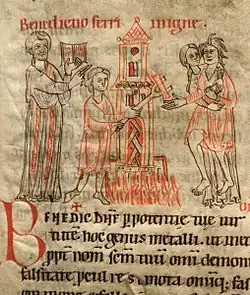 Benedictio ferri in igne.
BENEDIC DNE p potentie tue uir
tutē hoc genus metalli. ut in
ppt nom scm tuū omi demon
falsitate pcul re mota omiq; fas